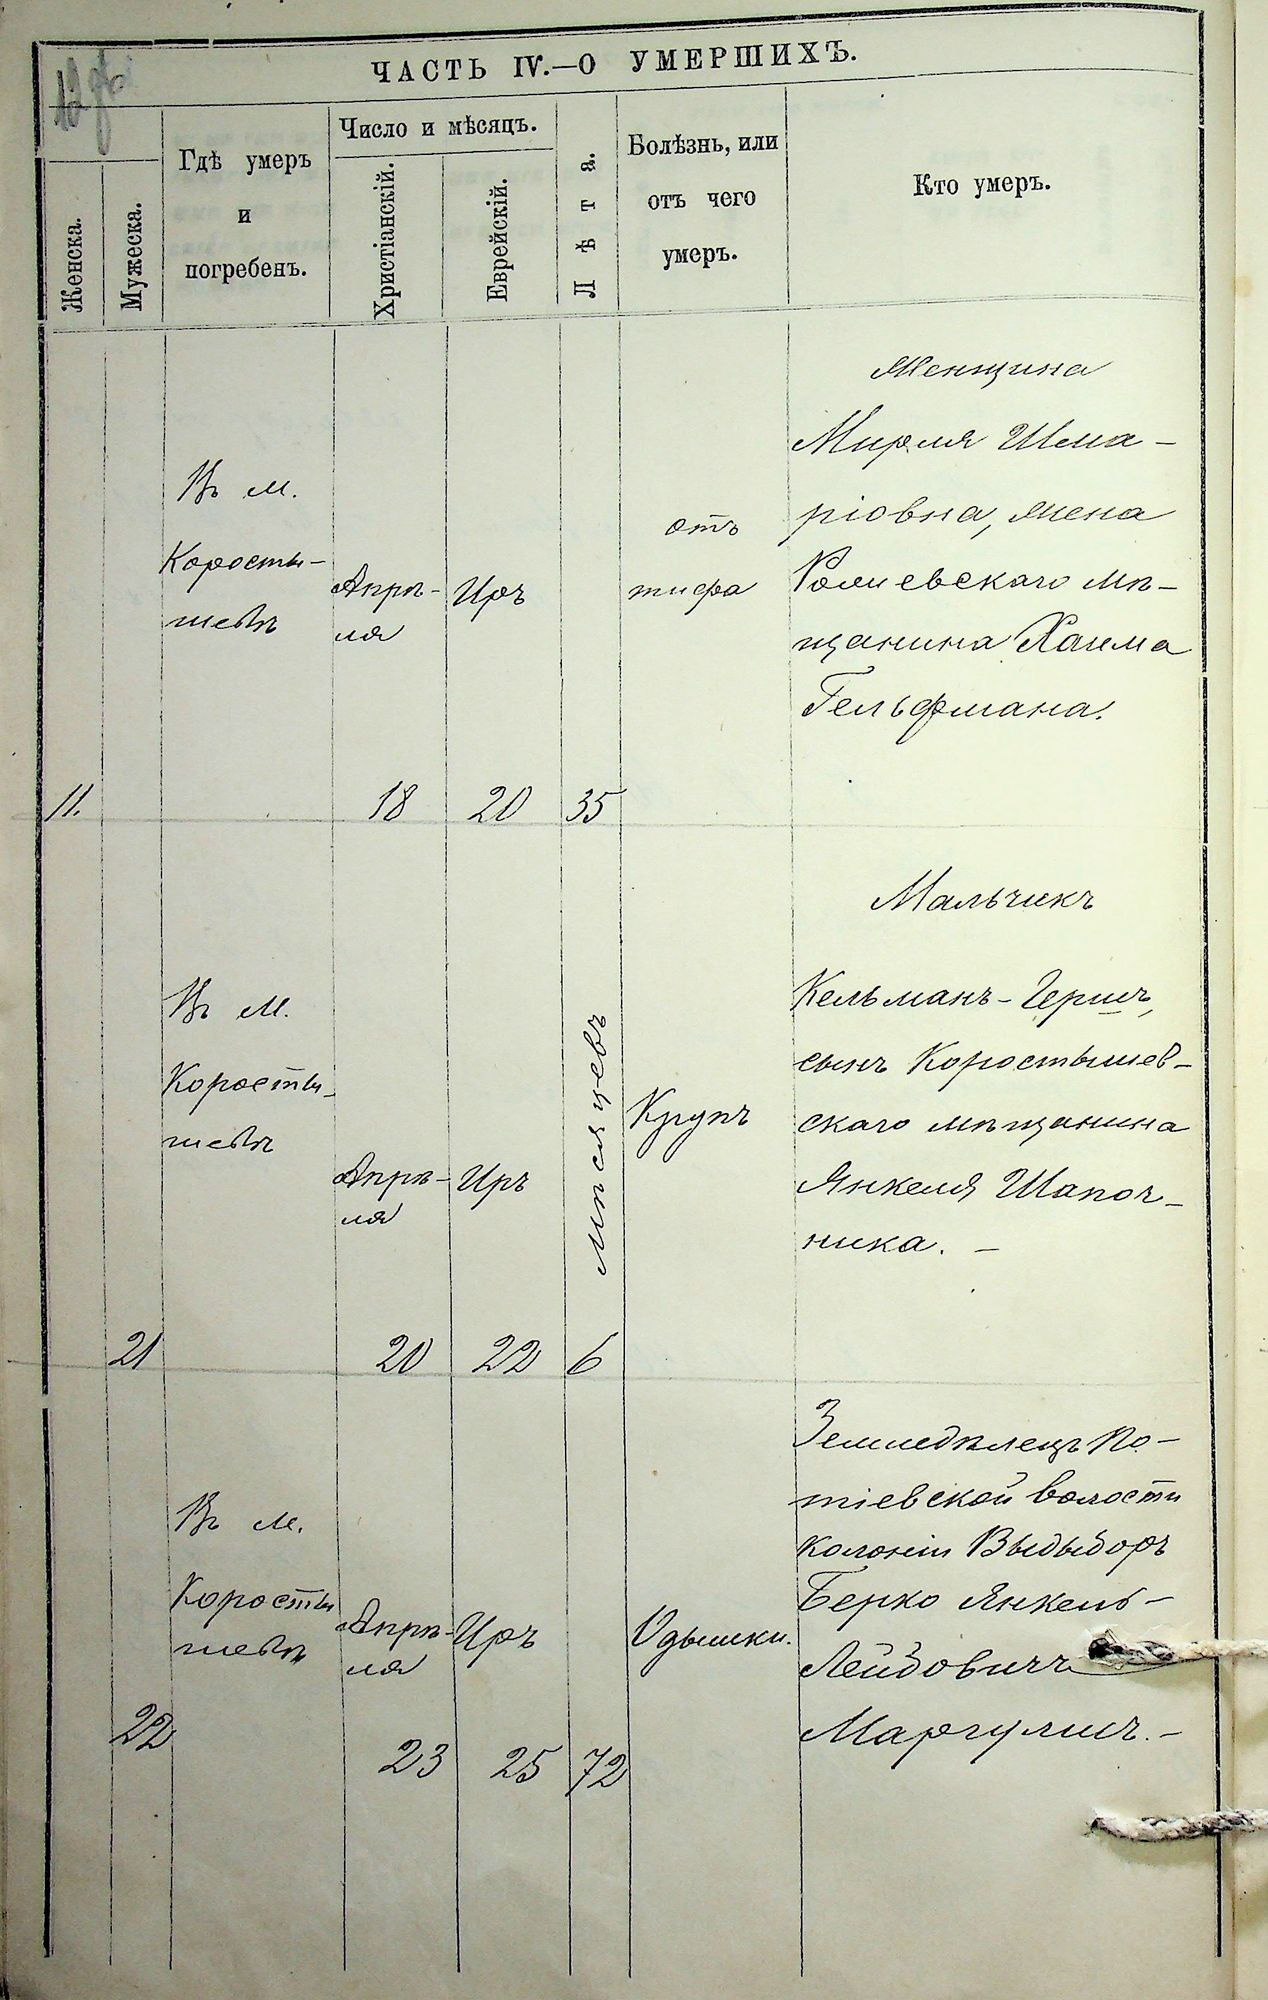 ЧАСТЬ IV.—О УМЕРШИХЪ.
Женска.
Мужеска.
Гдѣ умеръ
и
погребенъ.
Число и мѣсяцъ.
Христіанскій.
Еврейскій.
Лѣта.
Болѣзнь, или
отъ чего
умеръ.
Кто умеръ.
11.
Въ м.
Коросты-
шевѣ
Апрѣ-
ля
18
Иръ
20
35
отъ
тифа
Женщина
Мирля Шма-
ріовна, жена
мѣ-
щанина Хаима
Гельфмана.
21
Въ м.
Коросты-
шевѣ
Апрѣ-
ля
20
Иръ
22
мѣсяцевъ
6
Крупъ
Мальчикъ
Кельманъ-Гершъ,
сынъ Коростышев-
скаго мѣщанина
Янкеля Шапоч-
ника. —
22
Въ м.
Коросты
шевѣ
Апрѣ-
ля
23
Иръ
25
72
Одышки.
Земледѣлецъ По-
тіевской волости
колоніи Выдыборъ
Берко Янкель-
Лейбовичъ
Маргулисъ. —